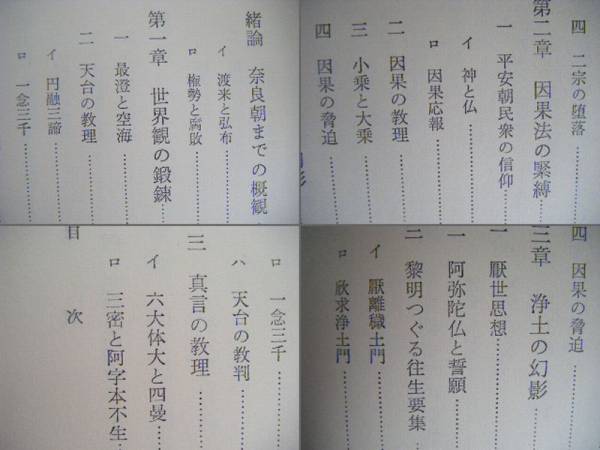 緒論 奈良朝までの概観
イ 渡来と弘布
ロ 権勢と腐敗
第一章 世界観の鍛錬
一 最澄と空海
二 天台の教理
イ 円融三諦
ロ 一念三千
四 二宗の堕落
第二章 因果法の緊縛
一 平安朝民衆の信仰
イ 神と仏
ロ 因果応報
二 因果の教理
三 小乗と大乗
四 因果の脅迫
ロ 一念三千
ハ 天台の教判
三 真言の教理
イ 六大体大と四曼
ロ 三密と阿字本不生
目次
四 因果の脅迫
三章 浄土の幻影
一 厭世思想
一 阿弥陀仏と誓願
二 黎明つぐる往生要集
イ 厭離穢土門
ロ 欣求浄土門